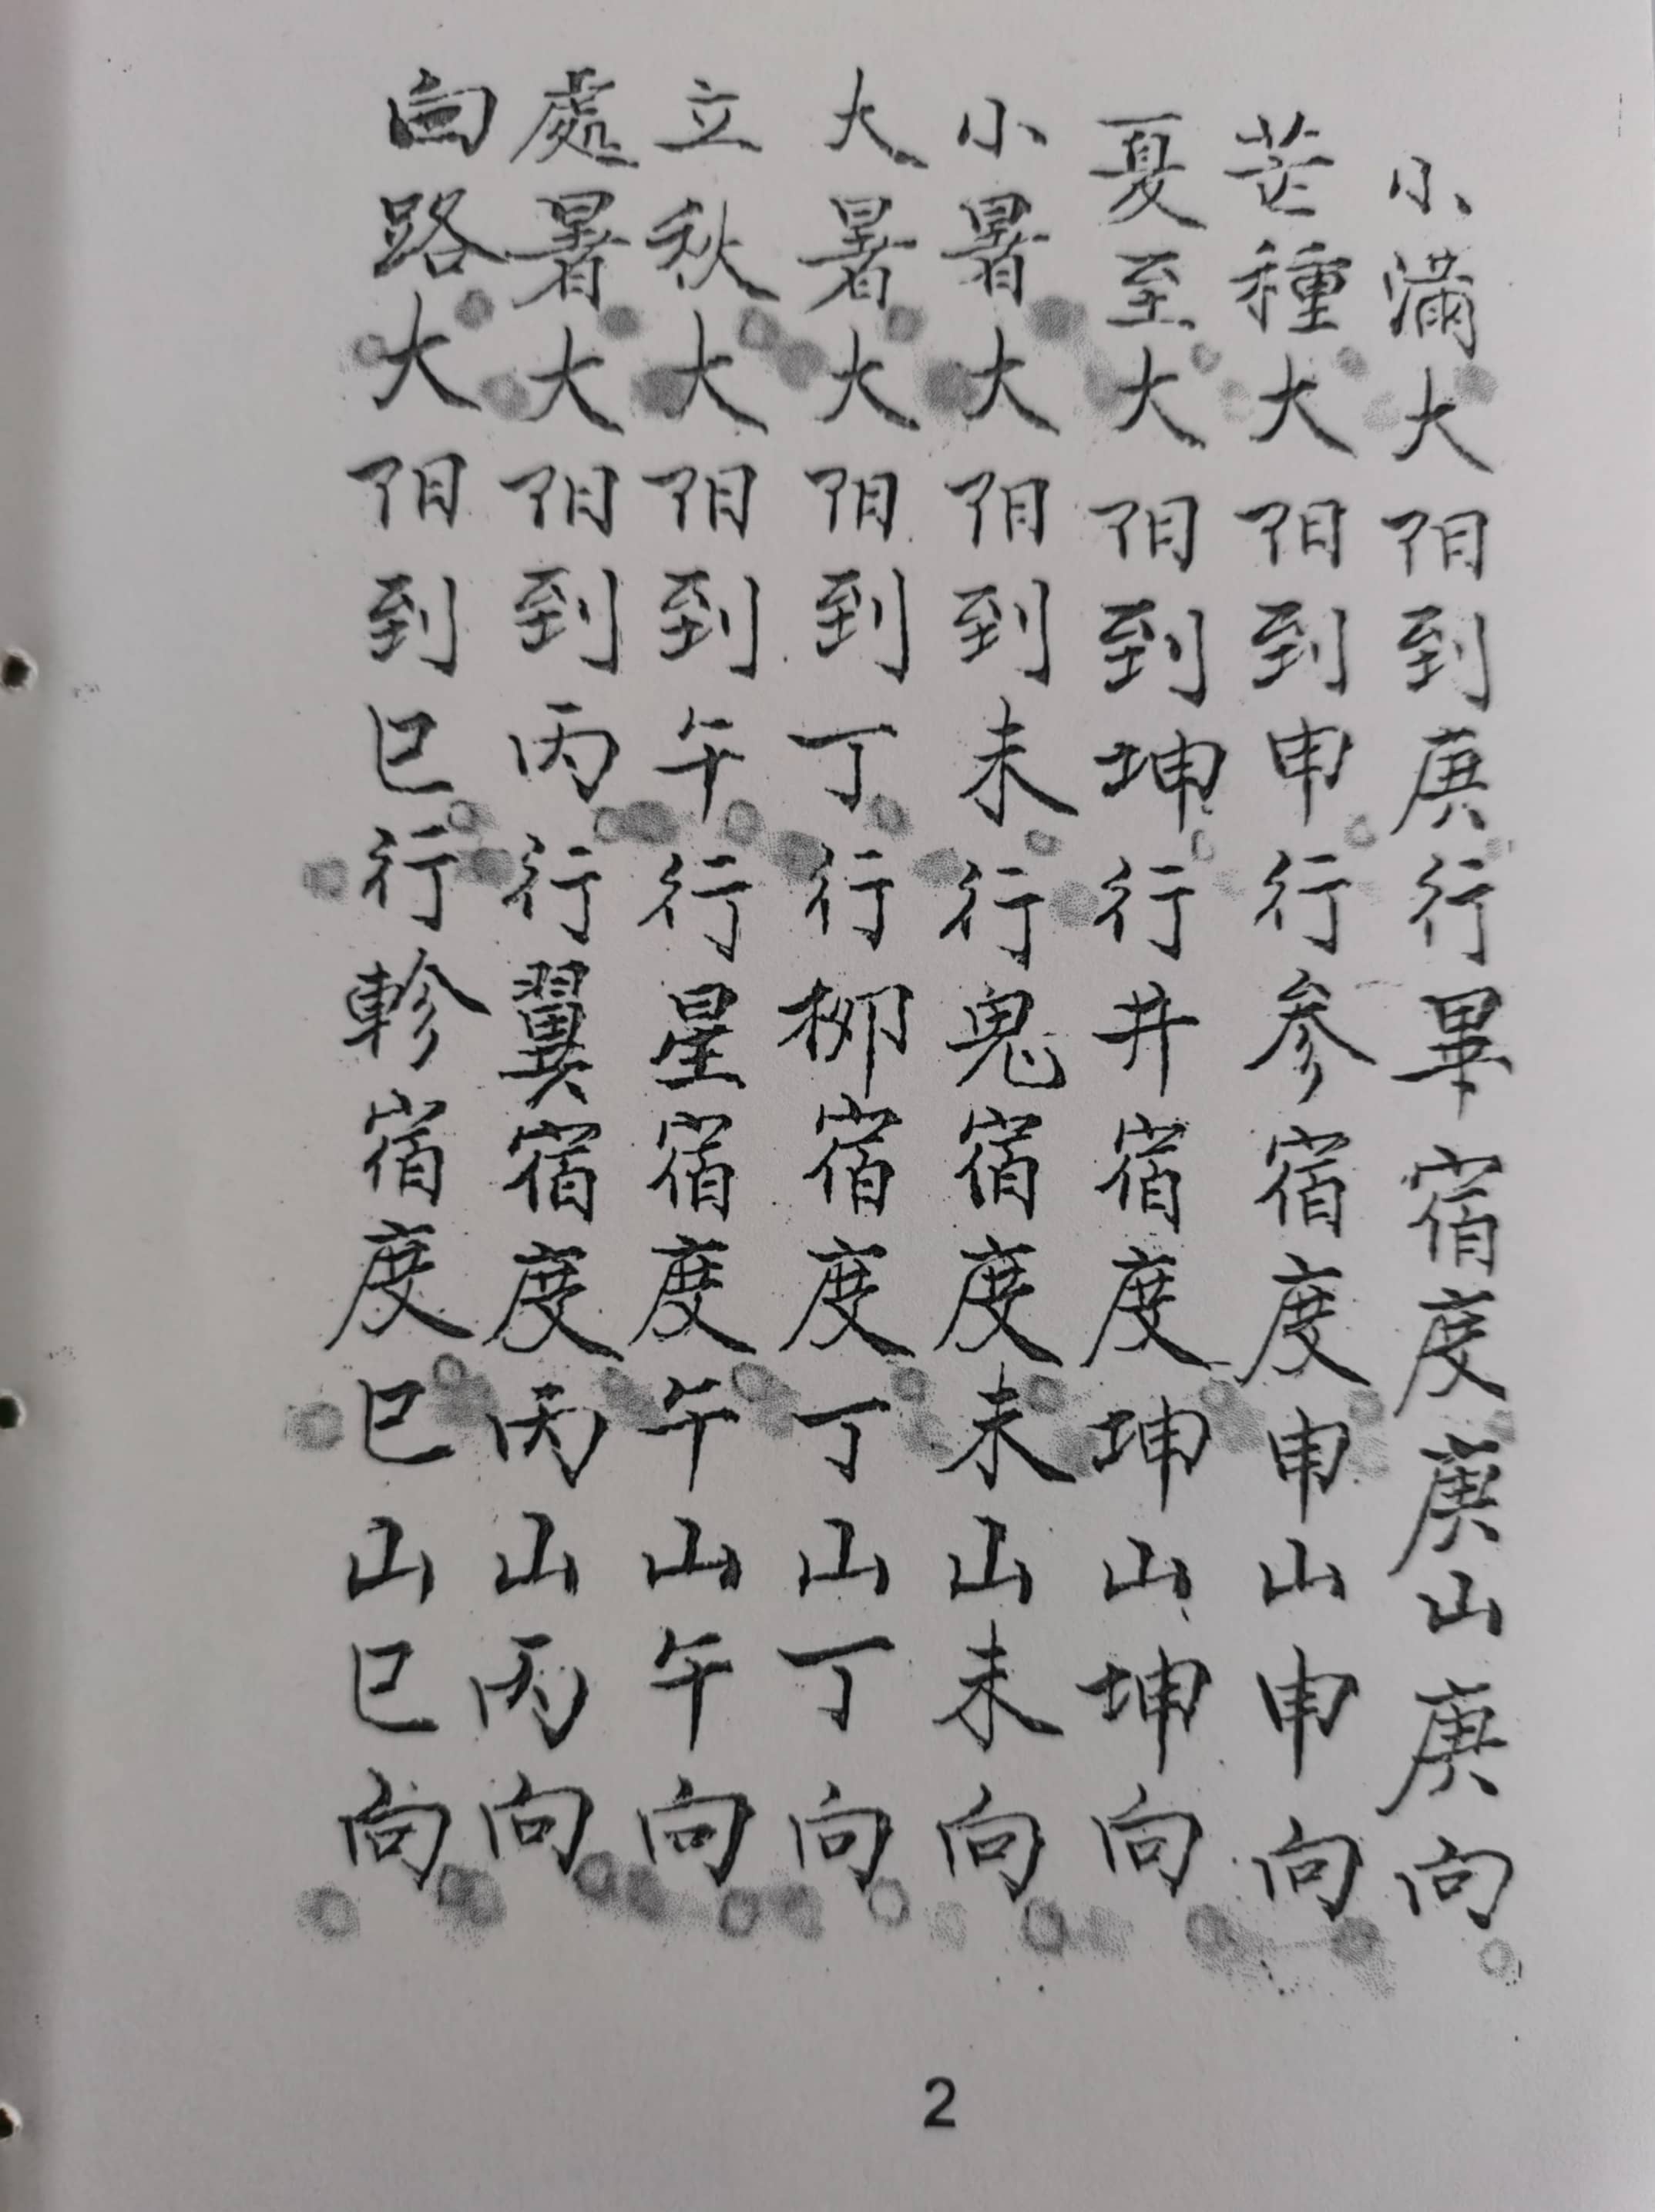 小滿大阳到庚行畢宿度庚山庚向
芒種大阳到申行参宿度申山申向
夏至大阳到坤行井宿度坤山坤向
小暑大阳到未行鬼宿度未山未向
大暑大阳到丁行柳宿度丁山丁向
立秋大阳到午行星宿度午山午向
處暑大阳到丙行翼宿度丙山丙向
白路大阳到巳行軫宿度巳山巳向
2